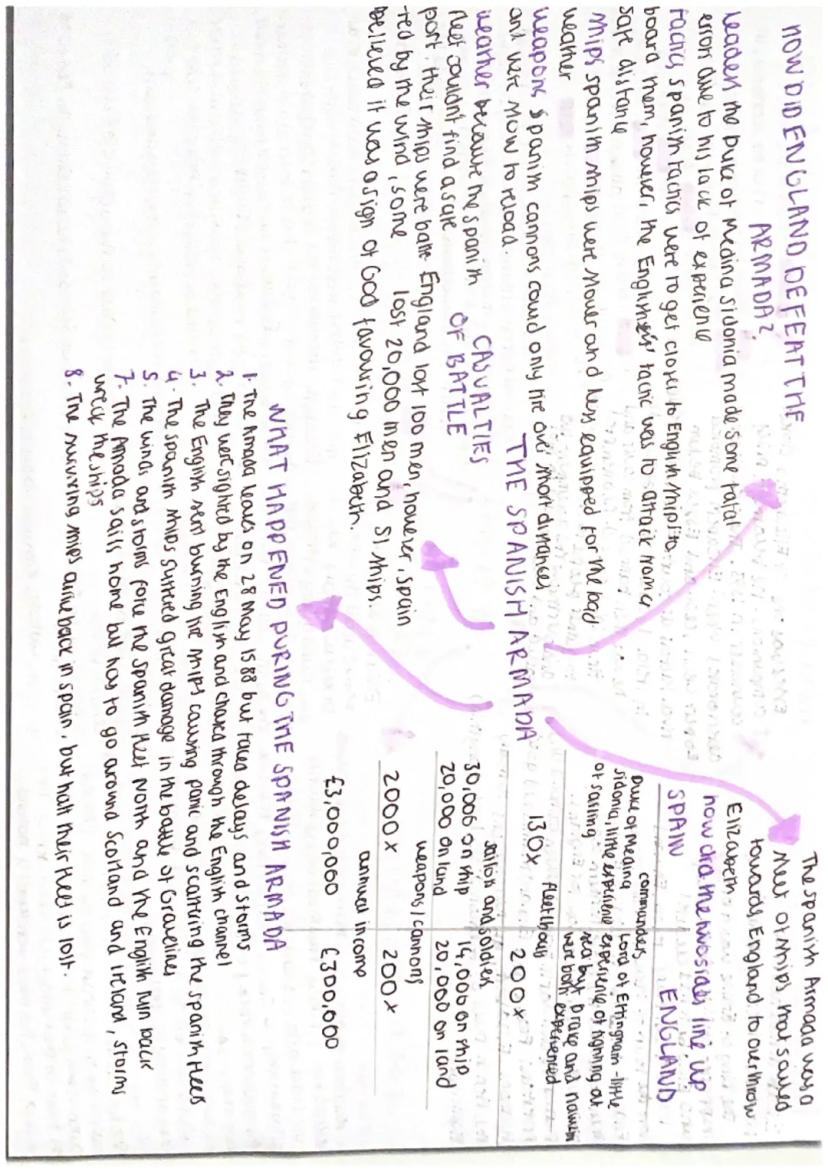 HOW DID ENGLAND DEFEAT THE
ARMADA?
leaders the Duke of Medina Sidonia made some fatal
errors due to his lack of experience
tactics spanish tactics were to get close to English ships to
board them, however, the Englishes' tactic was to attack from a
safe distance
ships spanish ships were slower and less equipped for the bad
weather
weapons spanish cannons could only fire over short distances
and were slow to reload.
weather because the spanish
fleet couldn't find a safe
port, their ships were batte
red by the wind, some
believed it was a sign of God favouring Elizabeth.
CASUALTIES
OF BATTLE
England lost 100 men, however, spain
lost 20,000 men and 51 ships.
THE SPANISH ARMADA
The spanish Armada was a
fleet of ships that sailed
towards England to overthrow
Elizabeth
how did the two sides line up
SPAIN ENGLAND
commanders
Duke of Medina
sidonia, little experience
of sailing
Lord of Effingham - little
experience of fighting at
sea but Drake and
were both experienced
fleet/boats
130x 200x
sailors and soldiers
30,000 on ship 14,000 on ship
20,000 on land 20,000 on land
weapons/cannons
2000x 200x
annual income
£3,000,000 £300,000
WHAT HAPPENED DURING THE SPANISH ARMADA
1. The Amada leaves on 28 May 1588 but faces delays and storms
2. They were sighted by the English and chased through the English channel
3. The English sent burning fire ships causing panic and scattering the spanish fleets
4. The spanish ships suffered great damage in the battle of Gravelines
5. The winds and storms force the spanish fleet North and the English turn back
7. The Armada sails home but has to go around Scotland and Ireland, storms
wreck the ships
8. The surviving ships arrive back in spain, but half their fleet is lost.